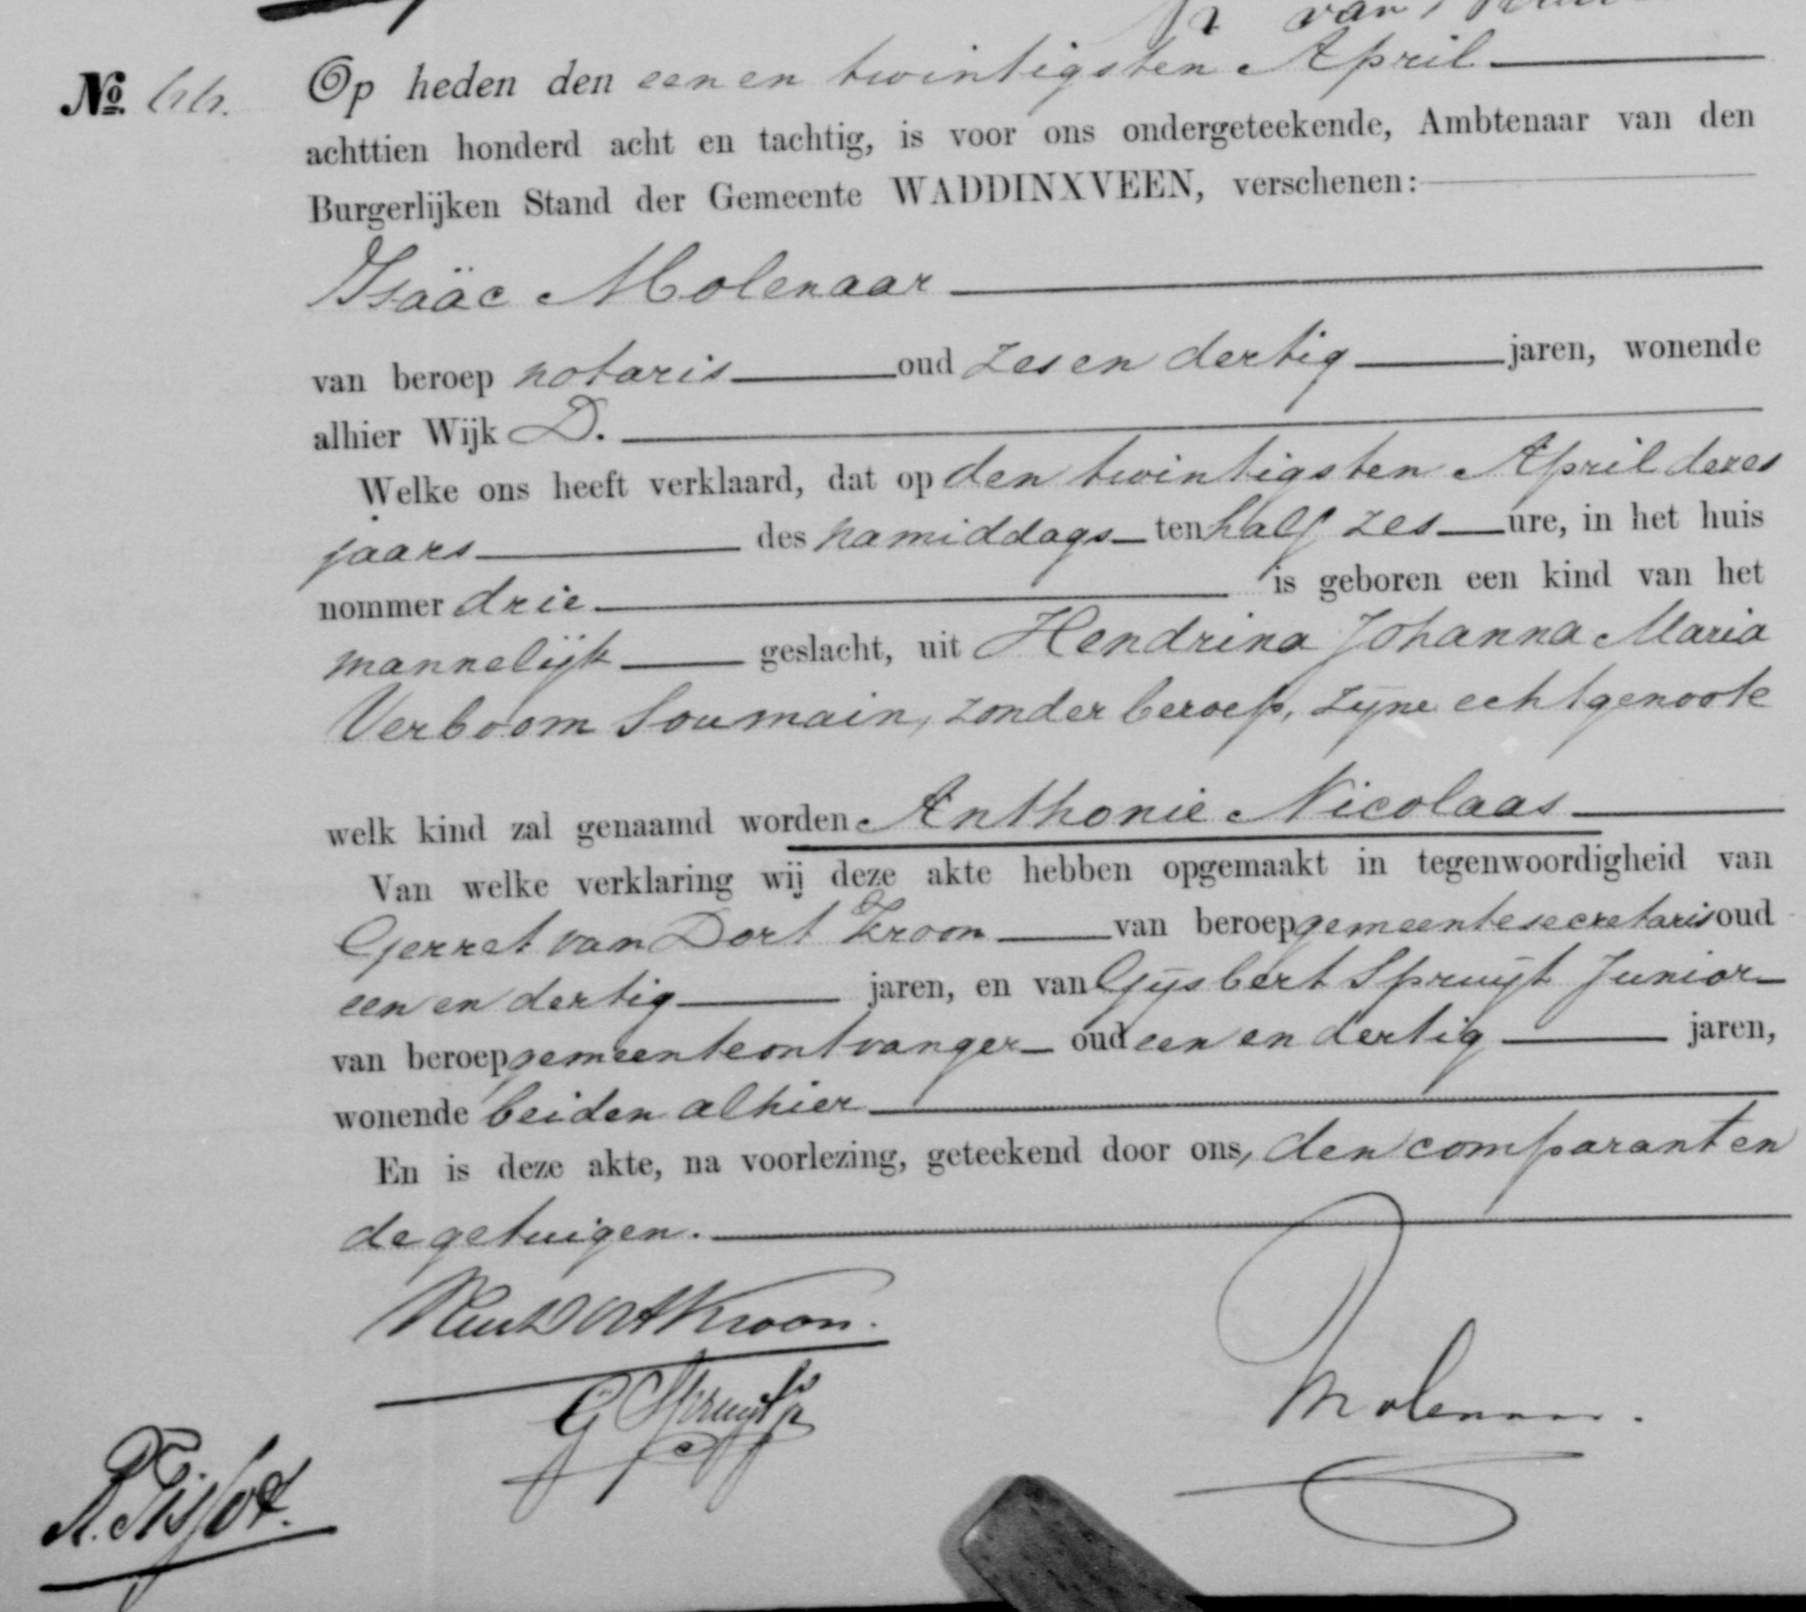 van
No. 66.
Op heden den een en twintigsten April
achttien honderd acht en tachtig, is voor ons ondergeteekende, Ambtenaar van den
Burgerlijken Stand der Gemeente WADDINXVEEN, verschenen:
Isaäc Molenaar
van beroep notaris oud zes en dertig jaren, wonende
alhier Wijk D.
Welke ons heeft verklaard, dat op den twintigsten April dezes
jaars des namiddags ten half zes ure, in het huis
nommer drie is geboren een kind van het
mannelijk geslacht, uit Hendrina Johanna Maria
Verboom Soumain, zonder beroep, zijne echtgenoote
welk kind zal genaamd worden Anthonie Nicolaas
Van welke verklaring wij deze akte hebben opgemaakt in tegenwoordigheid van
Gerret van Dort Kroon van beroep gemeentesecretaris oud
een en dertig jaren, en van Gijsbert Spruijt Junior
van beroep gemeenteontvanger oud een en dertig jaren,
wonende beiden alhier
En is deze akte, na voorlezing, geteekend door ons, den comparant en
de getuigen.
Dort Kroon.
G Spruijt Jr
Molenaar.